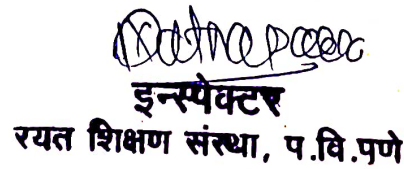 इन्स्पेक्टर
रयत शिक्षण संस्था, प.वि.पणे